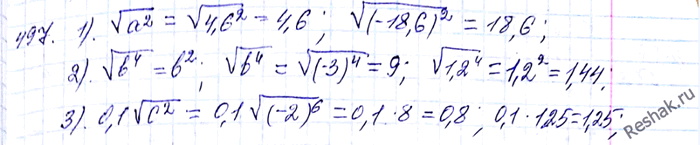 497. 1). √a² = √4,6² = 4,6; √(-18,6)² = 18,6;
2). √b⁴ = b²; √b⁴ = √(-3)⁴ = 9; √1,2⁴ = 1,2² = 1,44.
3). 0,1√c² = 0,1√(-2)⁶ = 0,1·8 = 0,8; 0,1·125 = 1,25;
Reshak.ru